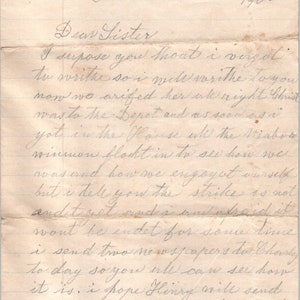 190
Dear Sister
I supose you thout i virgot
to writke so i will writke to you
now we arifed her all right Christ
was to the Depot and as soon as i
got in the House all the
flodt in to see how we
was and how we engoyet our self
but i tell you the strike is not
endet yet and i am afraid it
wont be endet for some time
i send two newspapers to
to day so you all can see how
it is. i hope Henry will send